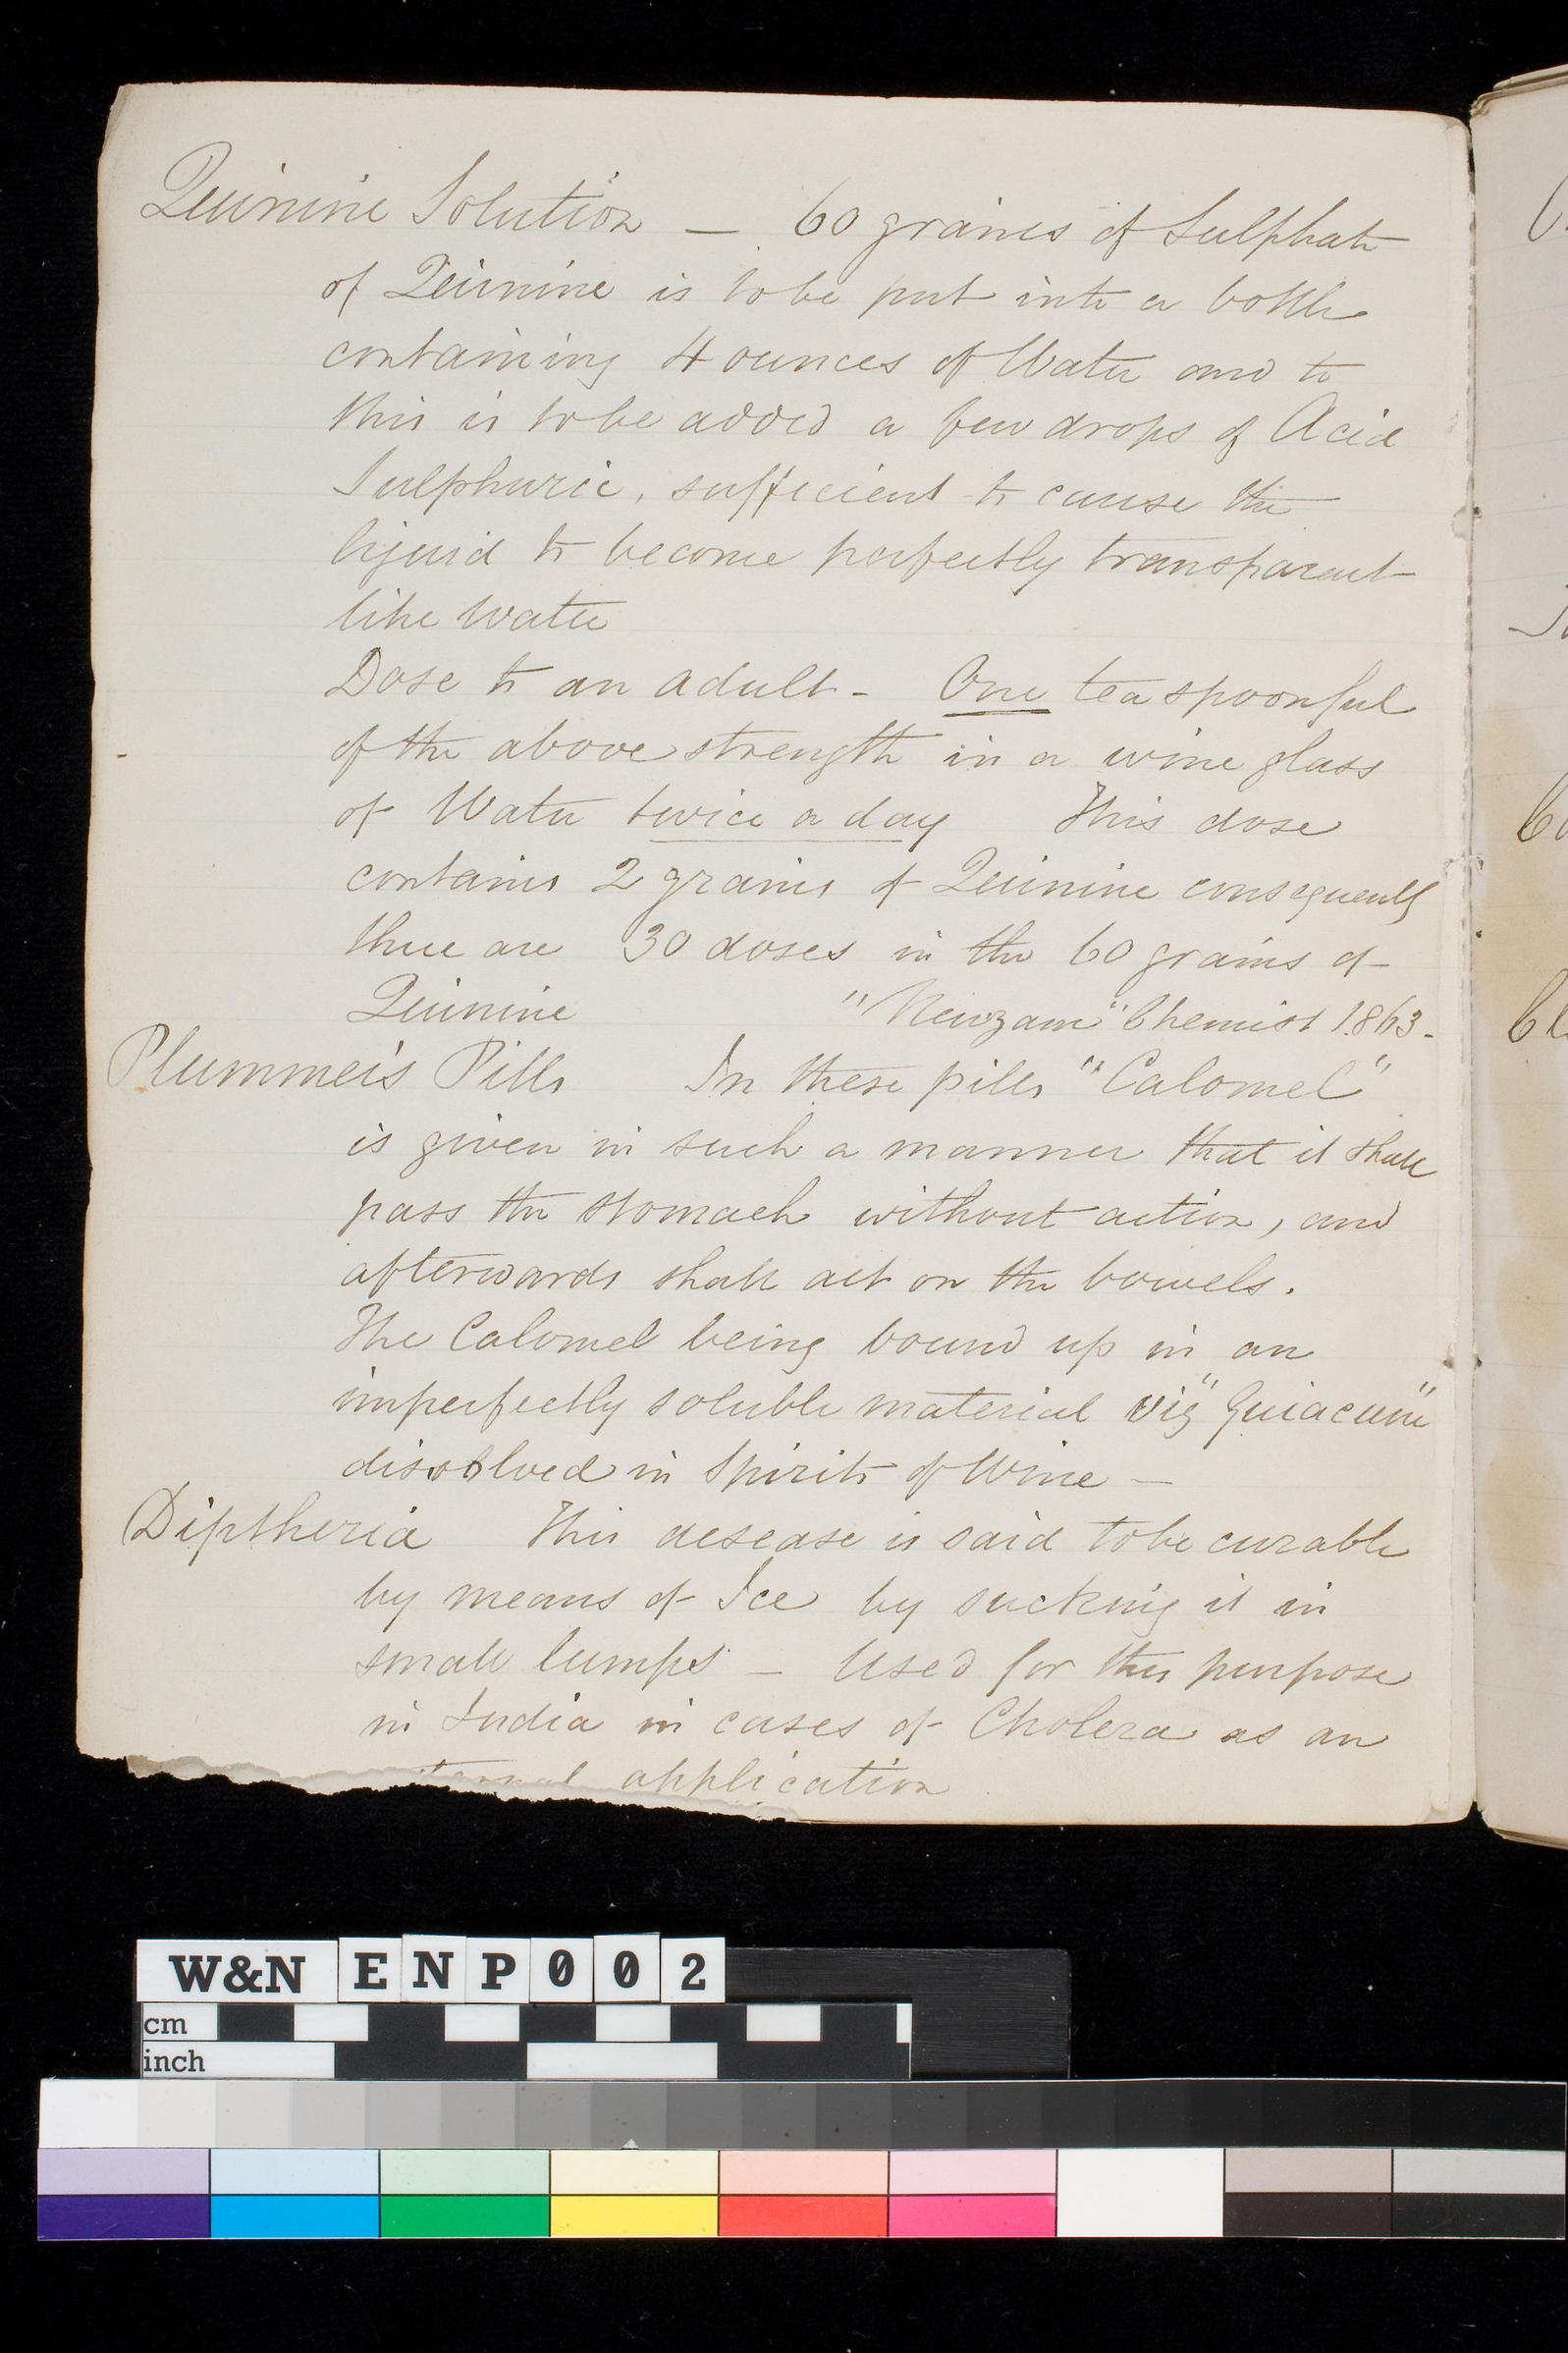 Quinine Solution — 60 grains of Sulphate
of Quinine is to be put into a bottle
containing 4 ounces of Water and to
this is to be added a few drops of Acid
Sulphuric, sufficient to cause the
liquid to become perfectly transparent
like Water
Dose to an adult - One teaspoonful
of the above strength in a wine glass
of Water twice a day This dose
contains 2 grains of Quinine consequently
there are 30 doses in the 60 grains of
Quinine "Newzam" Chemist 1863.
Plummer's Pills In these pills "Calomel"
is given in such a manner that it shall
pass the stomach without action, and
afterwards shall act on the bowels.
The Calomel being bound up in an
imperfectly soluble material viz "Guiacum"
dissolved in Spirits of Wine —
Diptheria This desease is said to be curable
by means of Ice by sucking it in
small lumps — Used for this purpose
in India in cases of Cholera as an
application
W&N ENP002
cm
inch